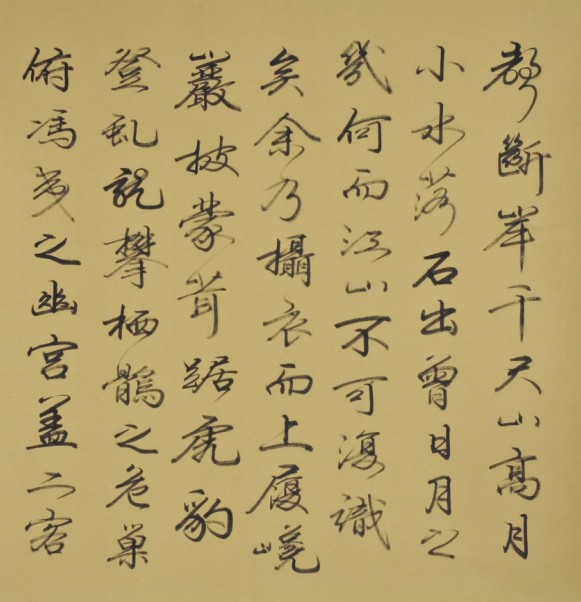 聲斷岸千尺山高月
小水落石出曾日月之
幾何而江山不可復識
矣余乃攝衣而上履巉
巖披蒙茸踞虎豹
登虬龍攀栖鶻之危巢
俯馮夷之幽宮盖二客